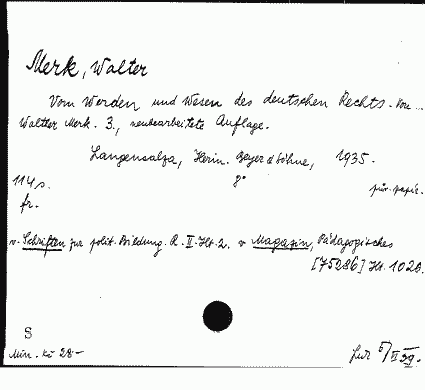 Merk, Walter
Vom Werden und Wesen des deutschen Rechts. Von ...
Walther Merk. 3., neubearbeitete Auflage.
Langensalza, Herm. Beyer & Söhne, 1935.
114 s. 8° pův. papír.
fr.
v. Schriften zur polit. Bildung. R. II. Hft. 2. v Magazin, Pädagogisches
[75286] Hft. 1020.
S
Min. Kč 28-
II 39.